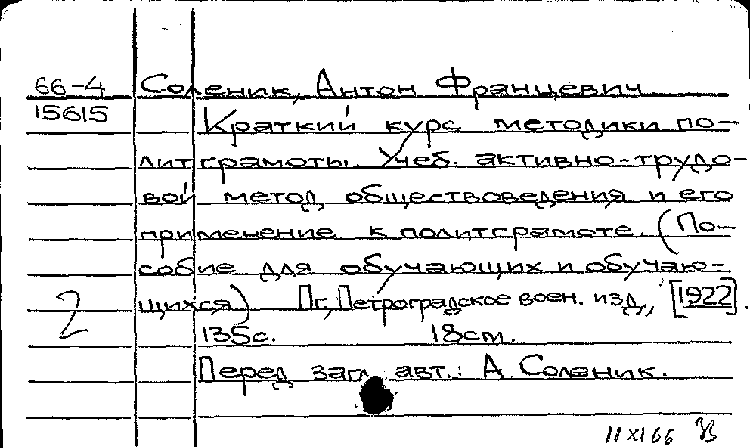 66-4 Соленик, Антон Францевич
15615 Краткий курс методики по-
литграмоты. Учеб. активно-трудо-
вой метод обществоведения и его
применение к политграмоте. (По-
собие для обучающих и обучаю-
щихся) Пг., Петроградское воен. изд., [1922].
2
135с. 18см.
Перед загл. авт.: А. Соленик.
11 XI 66